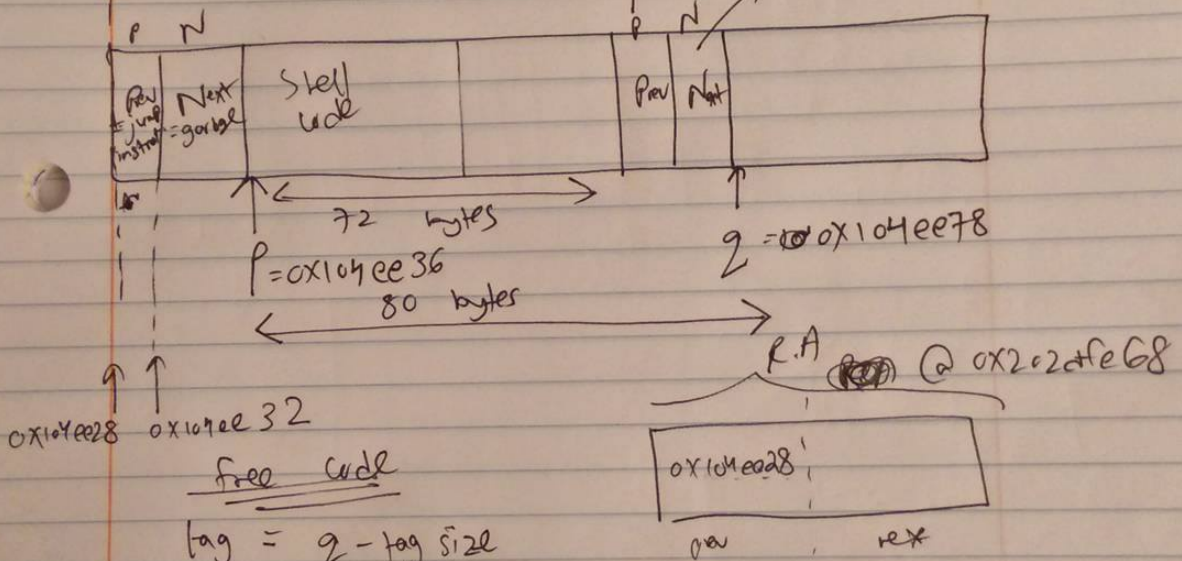 P N P N
Prev = jump instrut
Next = garbge
Shell code
Prev
Next
72 bytes
P = 0x104ee36
q = 0x104ee78
80 bytes
R.A @ 0x202dfe68
0x104ee28 0x104ee32
0x104ee28
free code
tag = q - tag size
prev next